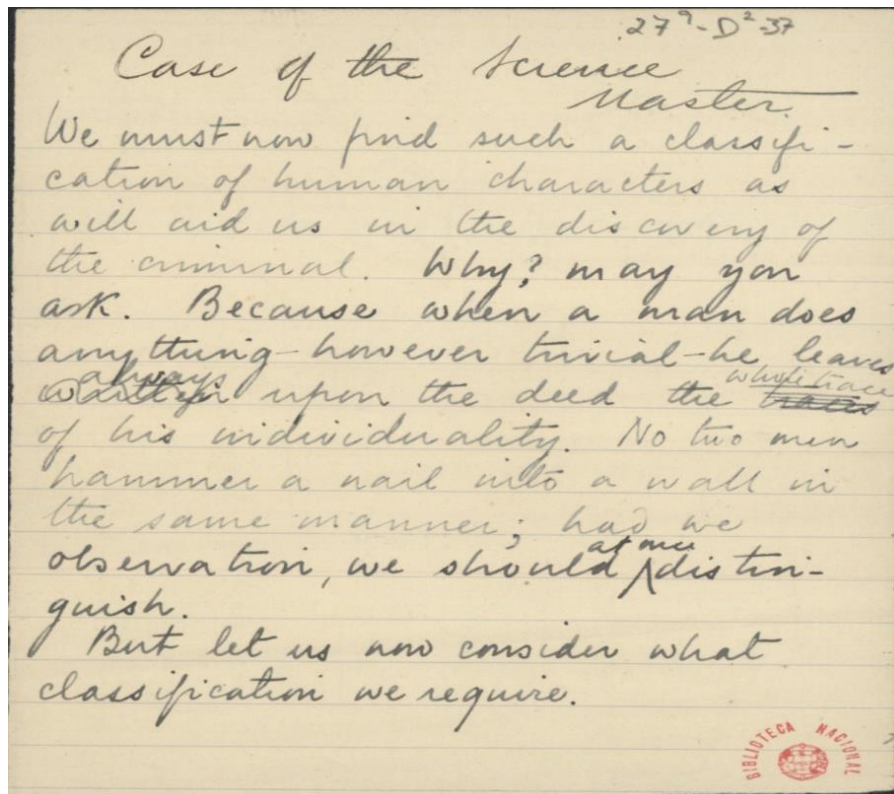 27⁹-D²-37
Case of the Science
Master.
We must now find such a classifi-
cation of human characters as
will aid us in the discovery of
the criminal. Why? may you
ask. Because when a man does
anything - however trivial - he leaves
always
written upon the deed the traces
whole trace
of his individuality. No two men
hammer a nail into a wall in
the same manner; had we
at once
observation, we should distin-
guish.
But let us now consider what
classification we require.
BIBLIOTECA NACIONAL